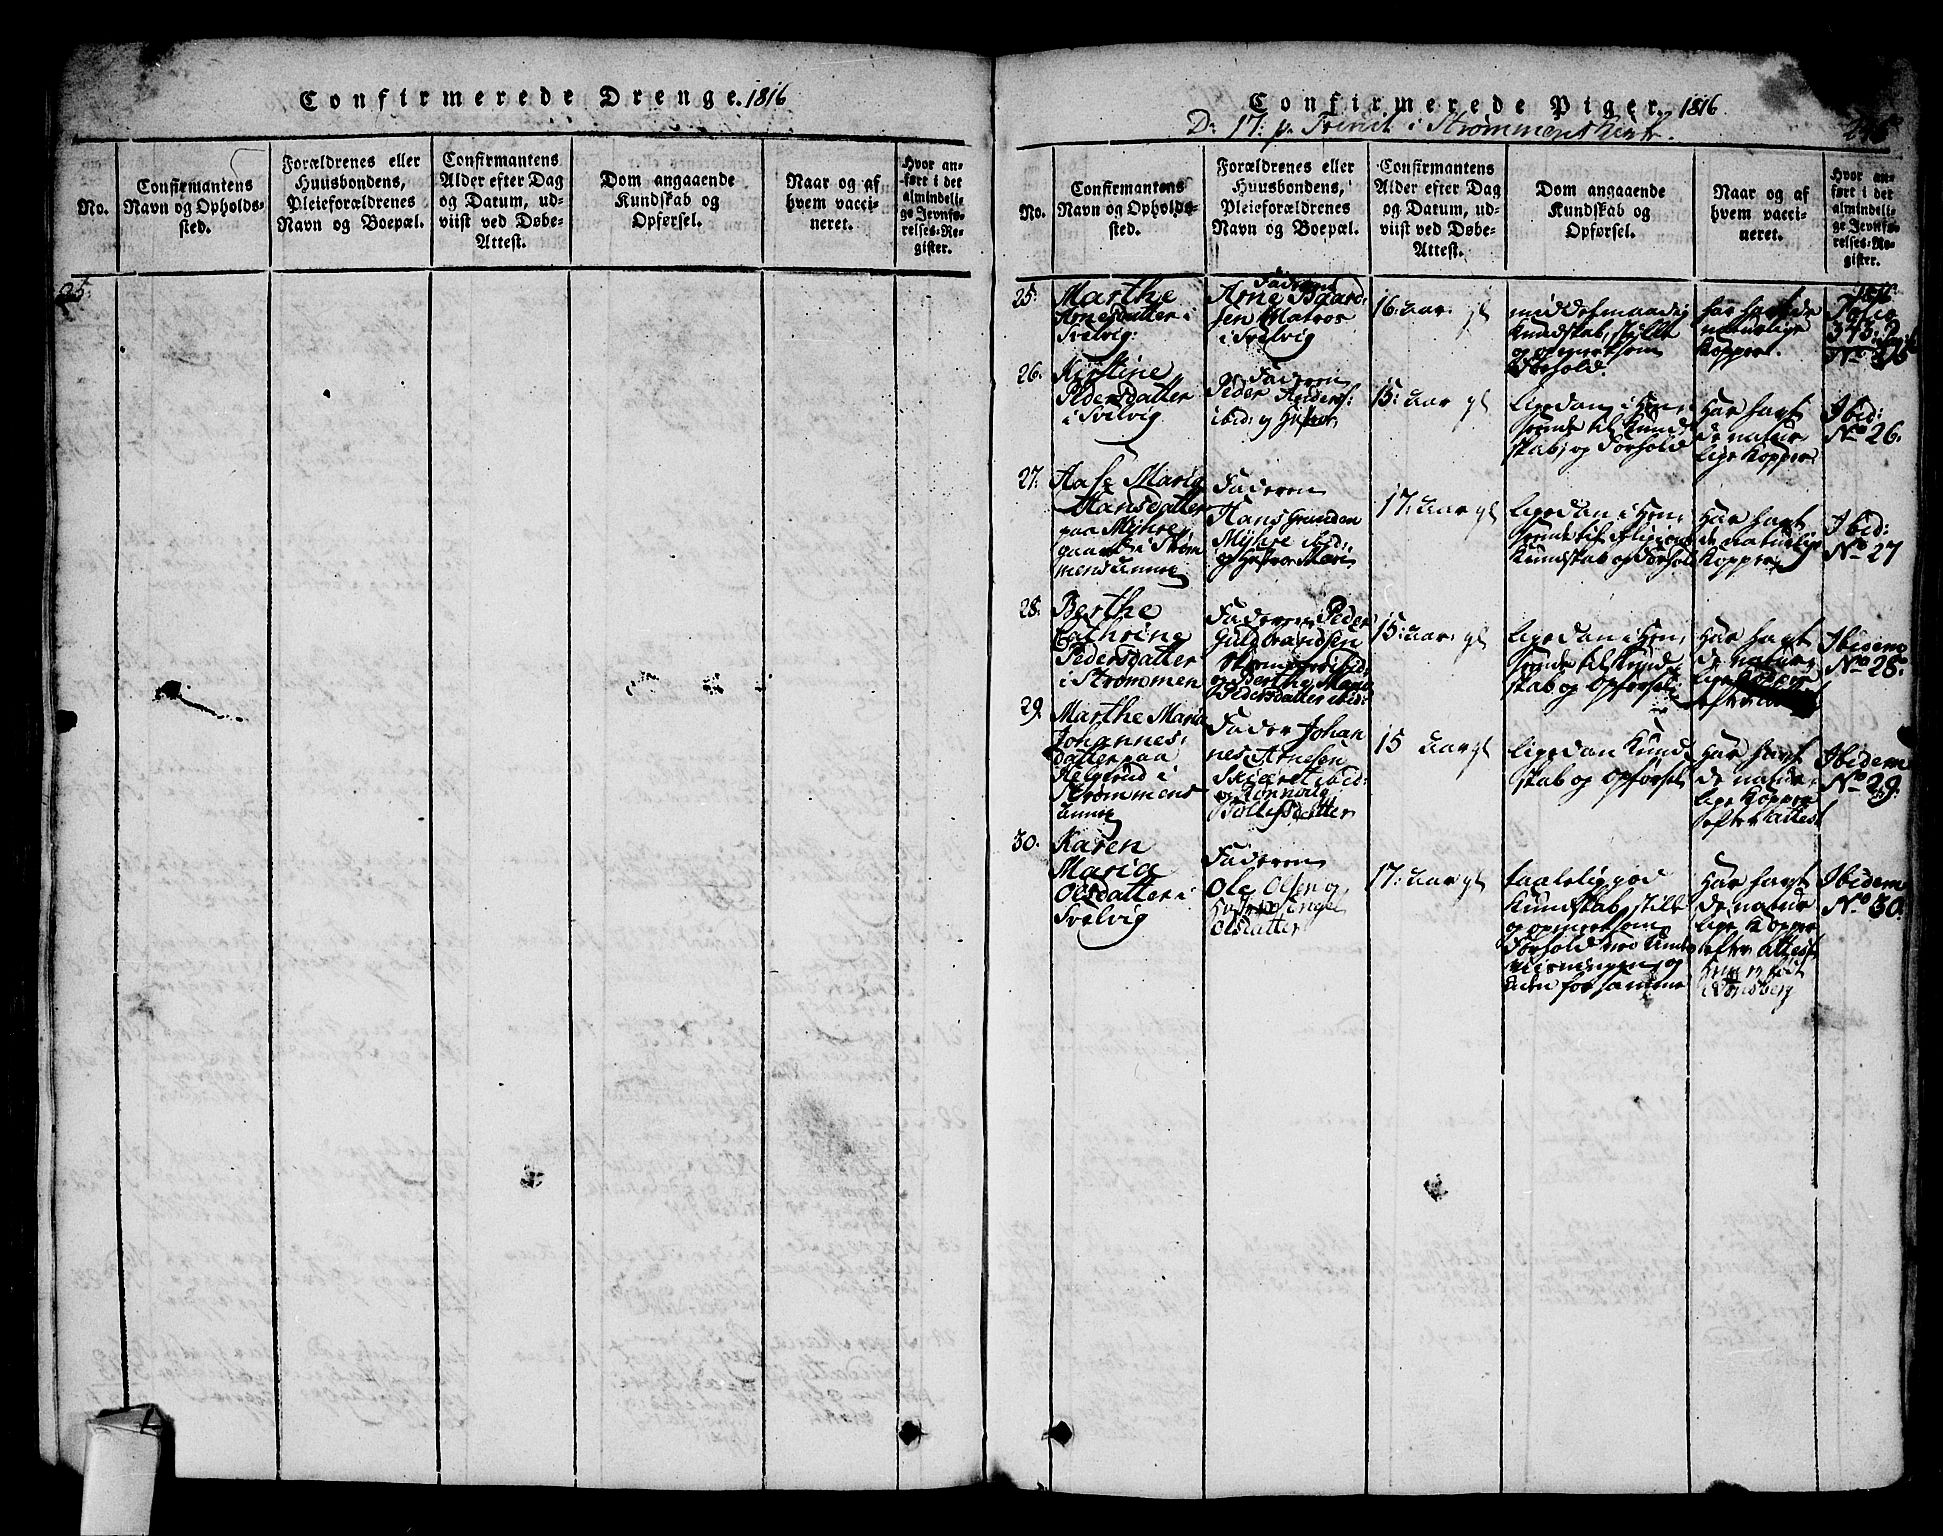 Confirmerede Drenge. 1816
No.
Confirmantens
Navn og Opholds-
sted.
Forældrenes eller
Huusbondens,
Pleieforældrenes
Navn og Boepæl.
Confirmantens
Alder efter Dag
og Datum, ud-
viist ved Døbe-
Attest.
Dom angaaende
Kundskab og
Opførsel.
Naar og af
hvem vacci-
neret.
Hvor an-
ført i det
almindeli-
ge Jevnfø-
relses-Re-
gister.
25:
Confirmerede Piger. 1816
D: 17: p. Trinit i Strømmens Kirke.
No.
Confirmantens
Navn og Opholds-
sted.
Forældrenes eller
Huusbondens,
Pleieforældrenes
Navn og Boepæl.
Confirmantens
Alder efter Dag
og Datum, ud-
viist ved Døbe-
Attest.
Dom angaaende
Kundskab og
Opførsel.
Naar og af
hvem vacci-
neret.
Hvor an-
ført i det
almindeli-
ge Jevnfø-
relses-Re-
gister.
25:
Marthe
Arnesdatter i
Svelvig:
Faderen
Arne Baard-
sen Matros
i Svelvig
16: aar gl
middelmaadig
Kundskab, stille
og opmerksom
Forhold.
har havt de
naturlige
Kopper.
Folio
343:
26.
Kirstine
Pedersdatter
i Svelvig
Faderen
Peder Anders:
ibid: og Hustroe
15: aar gl
ligedan i Hen,
seende til Kund
skab, og Forhold
Har havt
de natur
lige Kopper
Ibid:
No 26.
27:
Aase Maria
Hansdatter
paa Myhre,
gaarde i Strøm
mens annex
Faderen
Hans Gunden
Myhre ibid:
og Hustroe Mari
17: aar gl
ligedan i Hen,
seende til Religions
Kundskab og Forhold
Har havt
de naturlige
Kopper
Ibid:
No 27
28:
Berthe
Cathrine
Pedersdatter
i Strømmen
Faderen Peder
Guldbrandsen
Strømmen ibid:
og Berthe Maria
Pedersdatter ibid:
15: aar gl
ligedan i Hen,
seende til Kund,
skab og Opførsel
Har havt
de natur,
lige Kopper
efter attest
Ibidem
No 28.
29.
Marthe Maria
Johannes,
datter paa
Helgerud i
Strømmens
annex
Fader Johan
nes Arnesen
Skiæret ibid:
og Ronnoug
Tollefsdatter
15 aar gl
ligedan Kund,
skab og Opførsel
Har havt
de natur,
lige Kopper
efter attest
Ibidem
No 29.
30.
Karen
Maria
Olsdatter i
Svelvig
Faderen
Ole Olsen og
Hustroe Inger
Olsdatter
17: aar gl
taalelig god
Kundskab, stille
og opmerksom
Forhold ved Under
viisningen, og
uden for samme
Har havt
de natur
lige Kopper
efter attest
Hun er født
i Kongsberg
Ibidem
No 30.